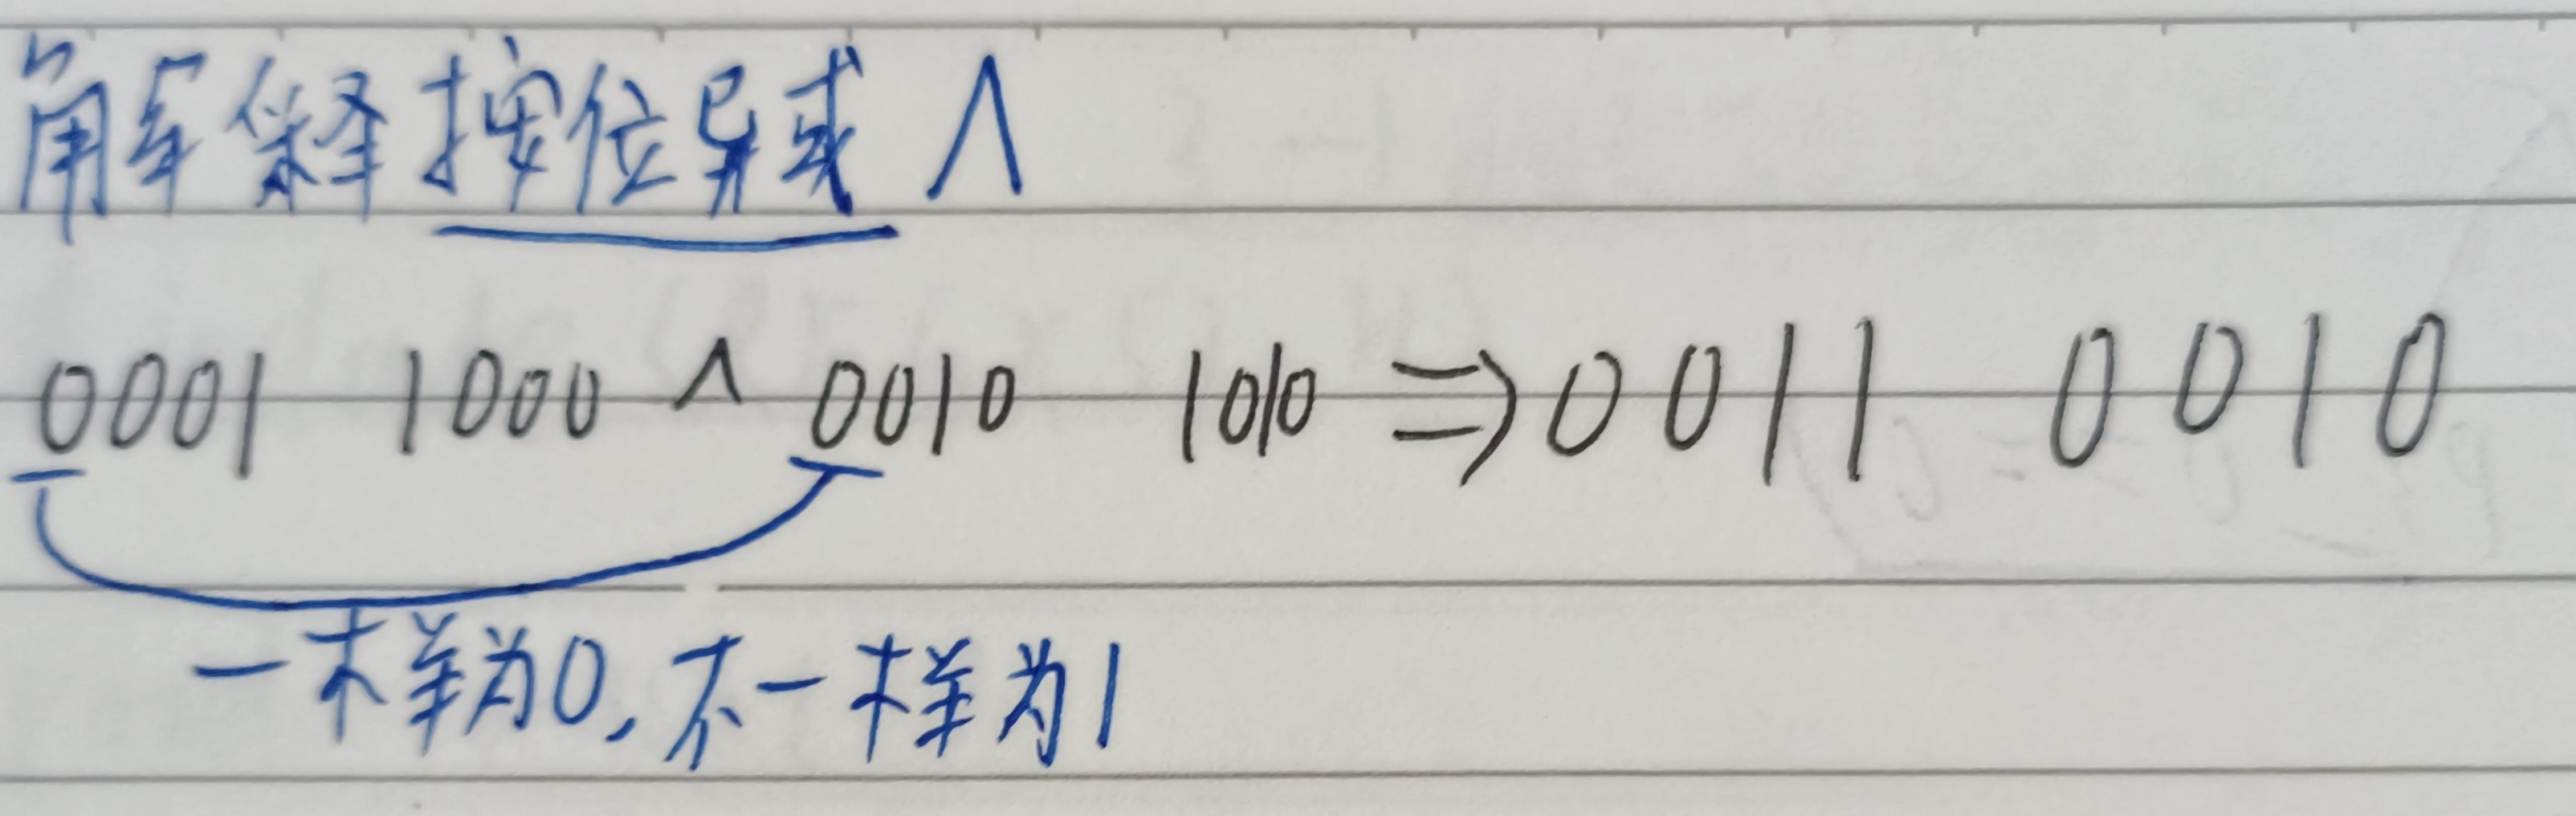 解释按位异或 ∧
0001 1000 ^ 0010 1010 ⇒ 0011 0010
一样为0,不一样为1